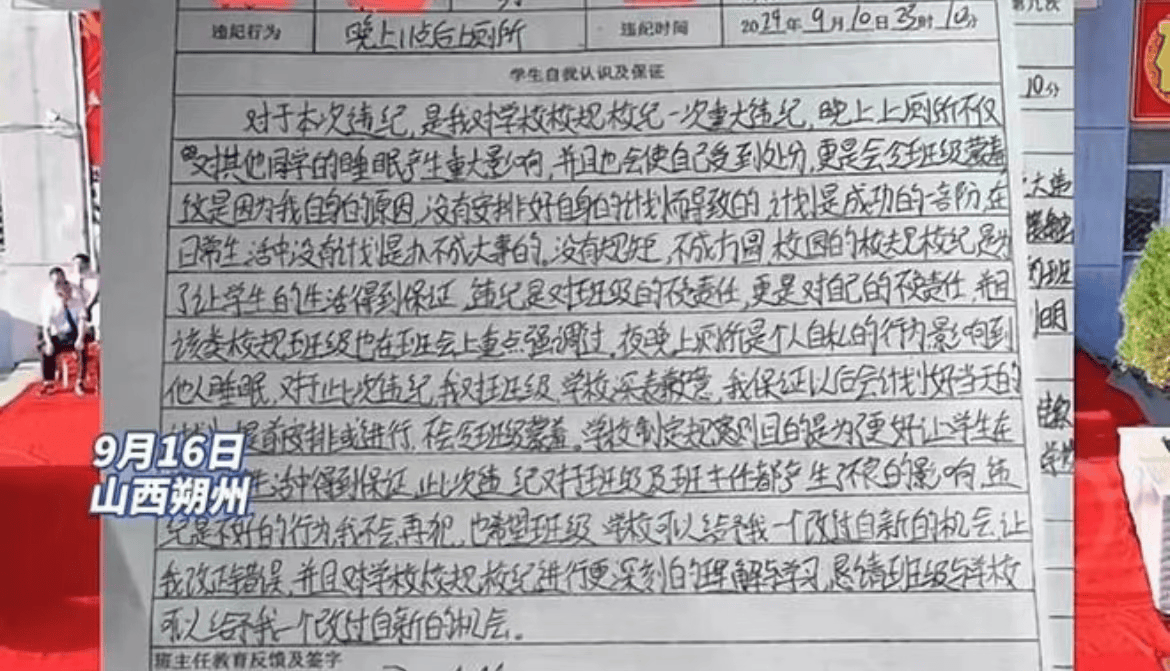 违纪行为 晚上11点后上厕所 违纪时间 2024年9月10日23时10分
学生自我认识及保证
对于本次违纪,是我对学校校规校纪一次重大违纪,晚上上厕所不仅
对其他同学的睡眠产生重大影响,并且也会使自己受到处分,更是会令班级蒙羞
这是因为我自身的原因,没有安排好自身的计划而导致的,计划是成功的一部份,在
日常生活中没有计划是办不成大事的,没有规矩,不成方圆,校园的校规校纪是为
了让学生的生活得到保证,违纪是对班级的不负责任,更是对自己的不负责任,并且
该类校规班级也在班会上重点强调过,夜晚上厕所是个人自私的行为影响到
他人睡眠,对于此次违纪,我对班级、学校深表歉意,我保证以后会计划好当天的
提前安排或进行,不会令班级蒙羞。学校制定规则目的是为了更好让学生在
生活中得到保证,此次违纪对班级及班主任都产生了不良的影响,违
纪是不好的行为,我不会再犯,也希望班级、学校可以给予我一个改过自新的机会,让
我改正错误,并且对学校校规、校纪进行更深刻的理解与学习,恳请班级与学校
可以给予我一个改过自新的机会。
班主任教育反馈及签字
10分
大第
班
明
学校
9月16日
山西朔州